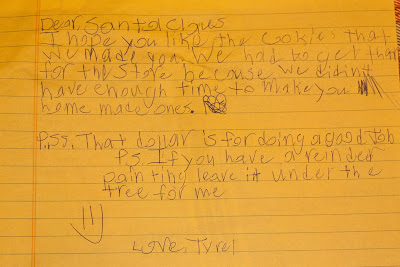 Dear Santa claus
I hope you like the cookies that
we made you. We had to get them
for the store because we didint
have enough time to make you
home made ones.
P.S.S. That dollar is for doing a good job
P.S. If you have a reinder
painting leave it under the
tree for me
Love, Tyrel